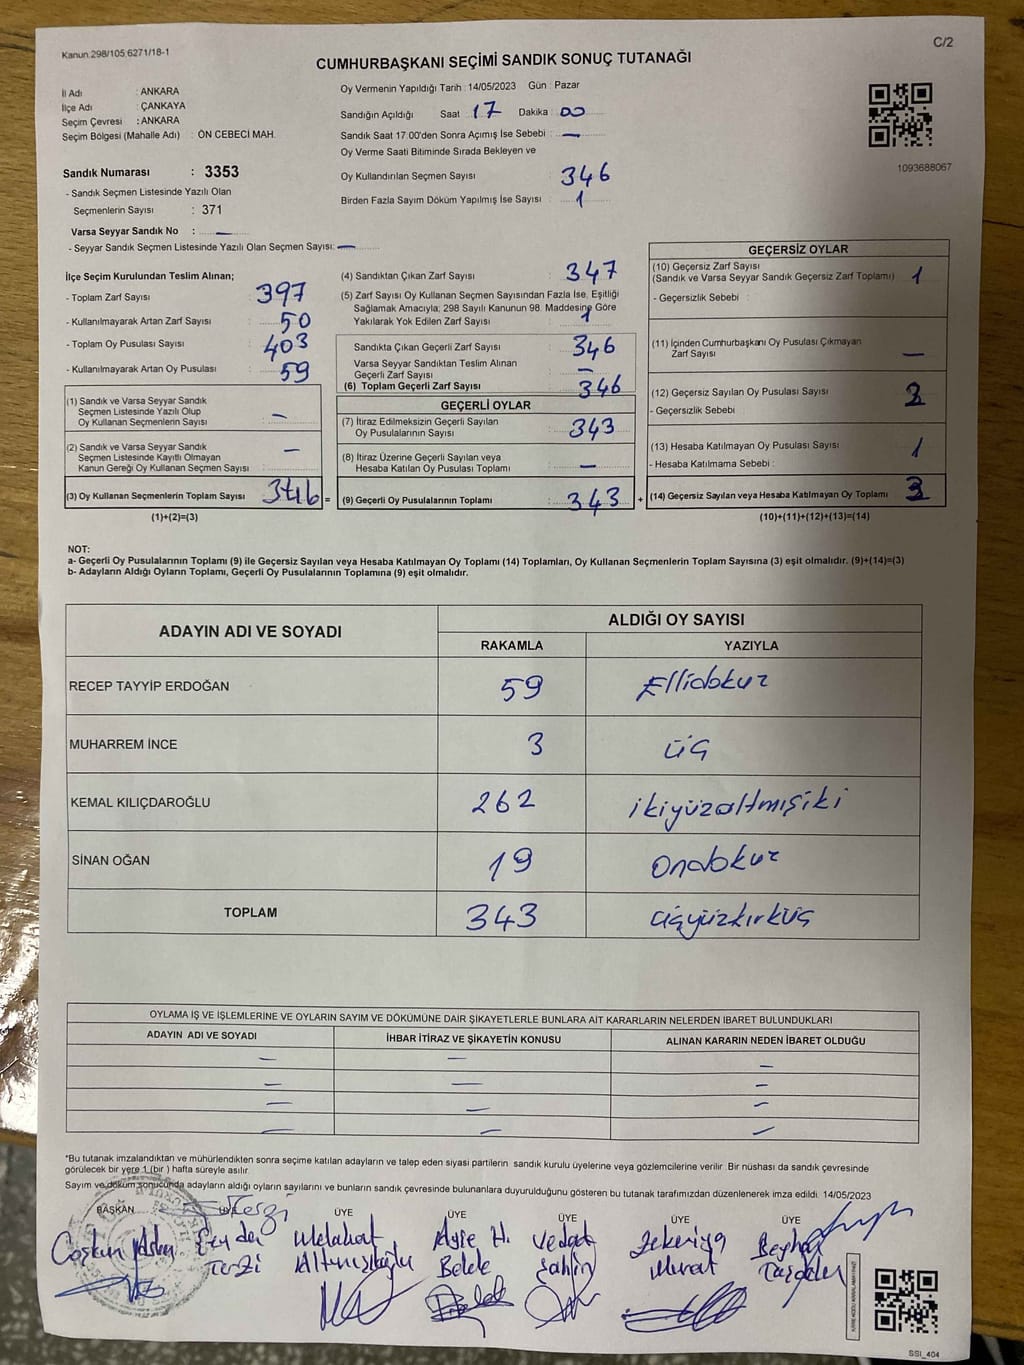 Kanun.298/105;6271/18-1
C/2
CUMHURBAŞKANI SEÇİMİ SANDIK SONUÇ TUTANAĞI
İl Adı : ANKARA
İlçe Adı : ÇANKAYA
Seçim Çevresi : ANKARA
Seçim Bölgesi (Mahalle Adı) : ÖN CEBECİ MAH.
Sandık Numarası : 3353
- Sandık Seçmen Listesinde Yazılı Olan
Seçmenlerin Sayısı : 371
Varsa Seyyar Sandık No : —
- Seyyar Sandık Seçmen Listesinde Yazılı Olan Seçmen Sayısı: —
Oy Vermenin Yapıldığı Tarih : 14/05/2023 Gün : Pazar
Sandığın Açıldığı Saat : 17 Dakika : 00
Sandık Saat 17.00'den Sonra Açımış İse Sebebi : —
Oy Verme Saati Bitiminde Sırada Bekleyen ve
Oy Kullandırılan Seçmen Sayısı : 346
Birden Fazla Sayım Döküm Yapılmış İse Sayısı : 1
1093688067
İlçe Seçim Kurulundan Teslim Alınan;
- Toplam Zarf Sayısı : 397
- Kullanılmayarak Artan Zarf Sayısı : 50
- Toplam Oy Pusulası Sayısı : 403
- Kullanılmayarak Artan Oy Pusulası : 59
(1) Sandık ve Varsa Seyyar Sandık
Seçmen Listesinde Yazılı Olup
Oy Kullanan Seçmenlerin Sayısı : —
(2) Sandık ve Varsa Seyyar Sandık
Seçmen Listesinde Kayıtlı Olmayan
Kanun Gereği Oy Kullanan Seçmen Sayısı : —
(3) Oy Kullanan Seçmenlerin Toplam Sayısı 346 =
(1)+(2)=(3)
(4) Sandıktan Çıkan Zarf Sayısı : 347
(5) Zarf Sayısı Oy Kullanan Seçmen Sayısından Fazla İse, Eşitliği
Sağlamak Amacıyla; 298 Sayılı Kanunun 98. Maddesine Göre
Yakılarak Yok Edilen Zarf Sayısı : 1
Sandıkta Çıkan Geçerli Zarf Sayısı : 346
Varsa Seyyar Sandıktan Teslim Alınan
Geçerli Zarf Sayısı : —
(6) Toplam Geçerli Zarf Sayısı : 346
GEÇERLİ OYLAR
(7) İtiraz Edilmeksizin Geçerli Sayılan
Oy Pusulalarının Sayısı : 343
(8) İtiraz Üzerine Geçerli Sayılan veya
Hesaba Katılan Oy Pusulası Toplamı : —
(9) Geçerli Oy Pusulalarının Toplamı : 343 +
GEÇERSİZ OYLAR
(10) Geçersiz Zarf Sayısı
(Sandık ve Varsa Seyyar Sandık Geçersiz Zarf Toplamı) : 1
- Geçersizlik Sebebi :
(11) İçinden Cumhurbaşkanı Oy Pusulası Çıkmayan
Zarf Sayısı : —
(12) Geçersiz Sayılan Oy Pusulası Sayısı :
- Geçersizlik Sebebi :
(13) Hesaba Katılmayan Oy Pusulası Sayısı : 1
- Hesaba Katılmama Sebebi :
(14) Geçersiz Sayılan veya Hesaba Katılmayan Oy Toplamı : 3
(10)+(11)+(12)+(13)=(14)
NOT:
a- Geçerli Oy Pusulalarının Toplamı (9) ile Geçersiz Sayılan veya Hesaba Katılmayan Oy Toplamı (14) Toplamları, Oy Kullanan Seçmenlerin Toplam Sayısına (3) eşit olmalıdır. (9)+(14)=(3)
b- Adayların Aldığı Oyların Toplamı, Geçerli Oy Pusulalarının Toplamına (9) eşit olmalıdır.
ADAYIN ADI VE SOYADI ALDIĞI OY SAYISI
RAKAMLA YAZIYLA
RECEP TAYYİP ERDOĞAN 59 Ellidokuz
MUHARREM İNCE 3 üç
KEMAL KILIÇDAROĞLU 262 ikiyüzaltmışiki
SİNAN OĞAN 19 Ondokuz
TOPLAM 343 üçyüzkırküç
OYLAMA İŞ VE İŞLEMLERİNE VE OYLARIN SAYIM VE DÖKÜMÜNE DAİR ŞİKAYETLERLE BUNLARA AİT KARARLARIN NELERDEN İBARET BULUNDUKLARI
ADAYIN ADI VE SOYADI İHBAR İTİRAZ VE ŞİKAYETİN KONUSU ALINAN KARARIN NEDEN İBARET OLDUĞU
— — —
— — —
— — —
— — —
*Bu tutanak imzalandıktan ve mühürlendikten sonra seçime katılan adayların ve talep eden siyasi partilerin sandık kurulu üyelerine veya gözlemcilerine verilir. Bir nüshası da sandık çevresinde
görülecek bir yere 1 (bir ) hafta süreyle asılır.
Sayım ve döküm sonucunda adayların aldığı oyların sayılarını ve bunların sandık çevresinde bulunanlara duyurulduğunu gösteren bu tutanak tarafımızdan düzenlenerek imza edildi. 14/05/2023
BAŞKAN ÜYE ÜYE ÜYE ÜYE ÜYE ÜYE
Terzi
Coşkun Melahat Ayşe H. Vedat Zekeriya Beyhan
Terzi Şahin Murat
SSI_404